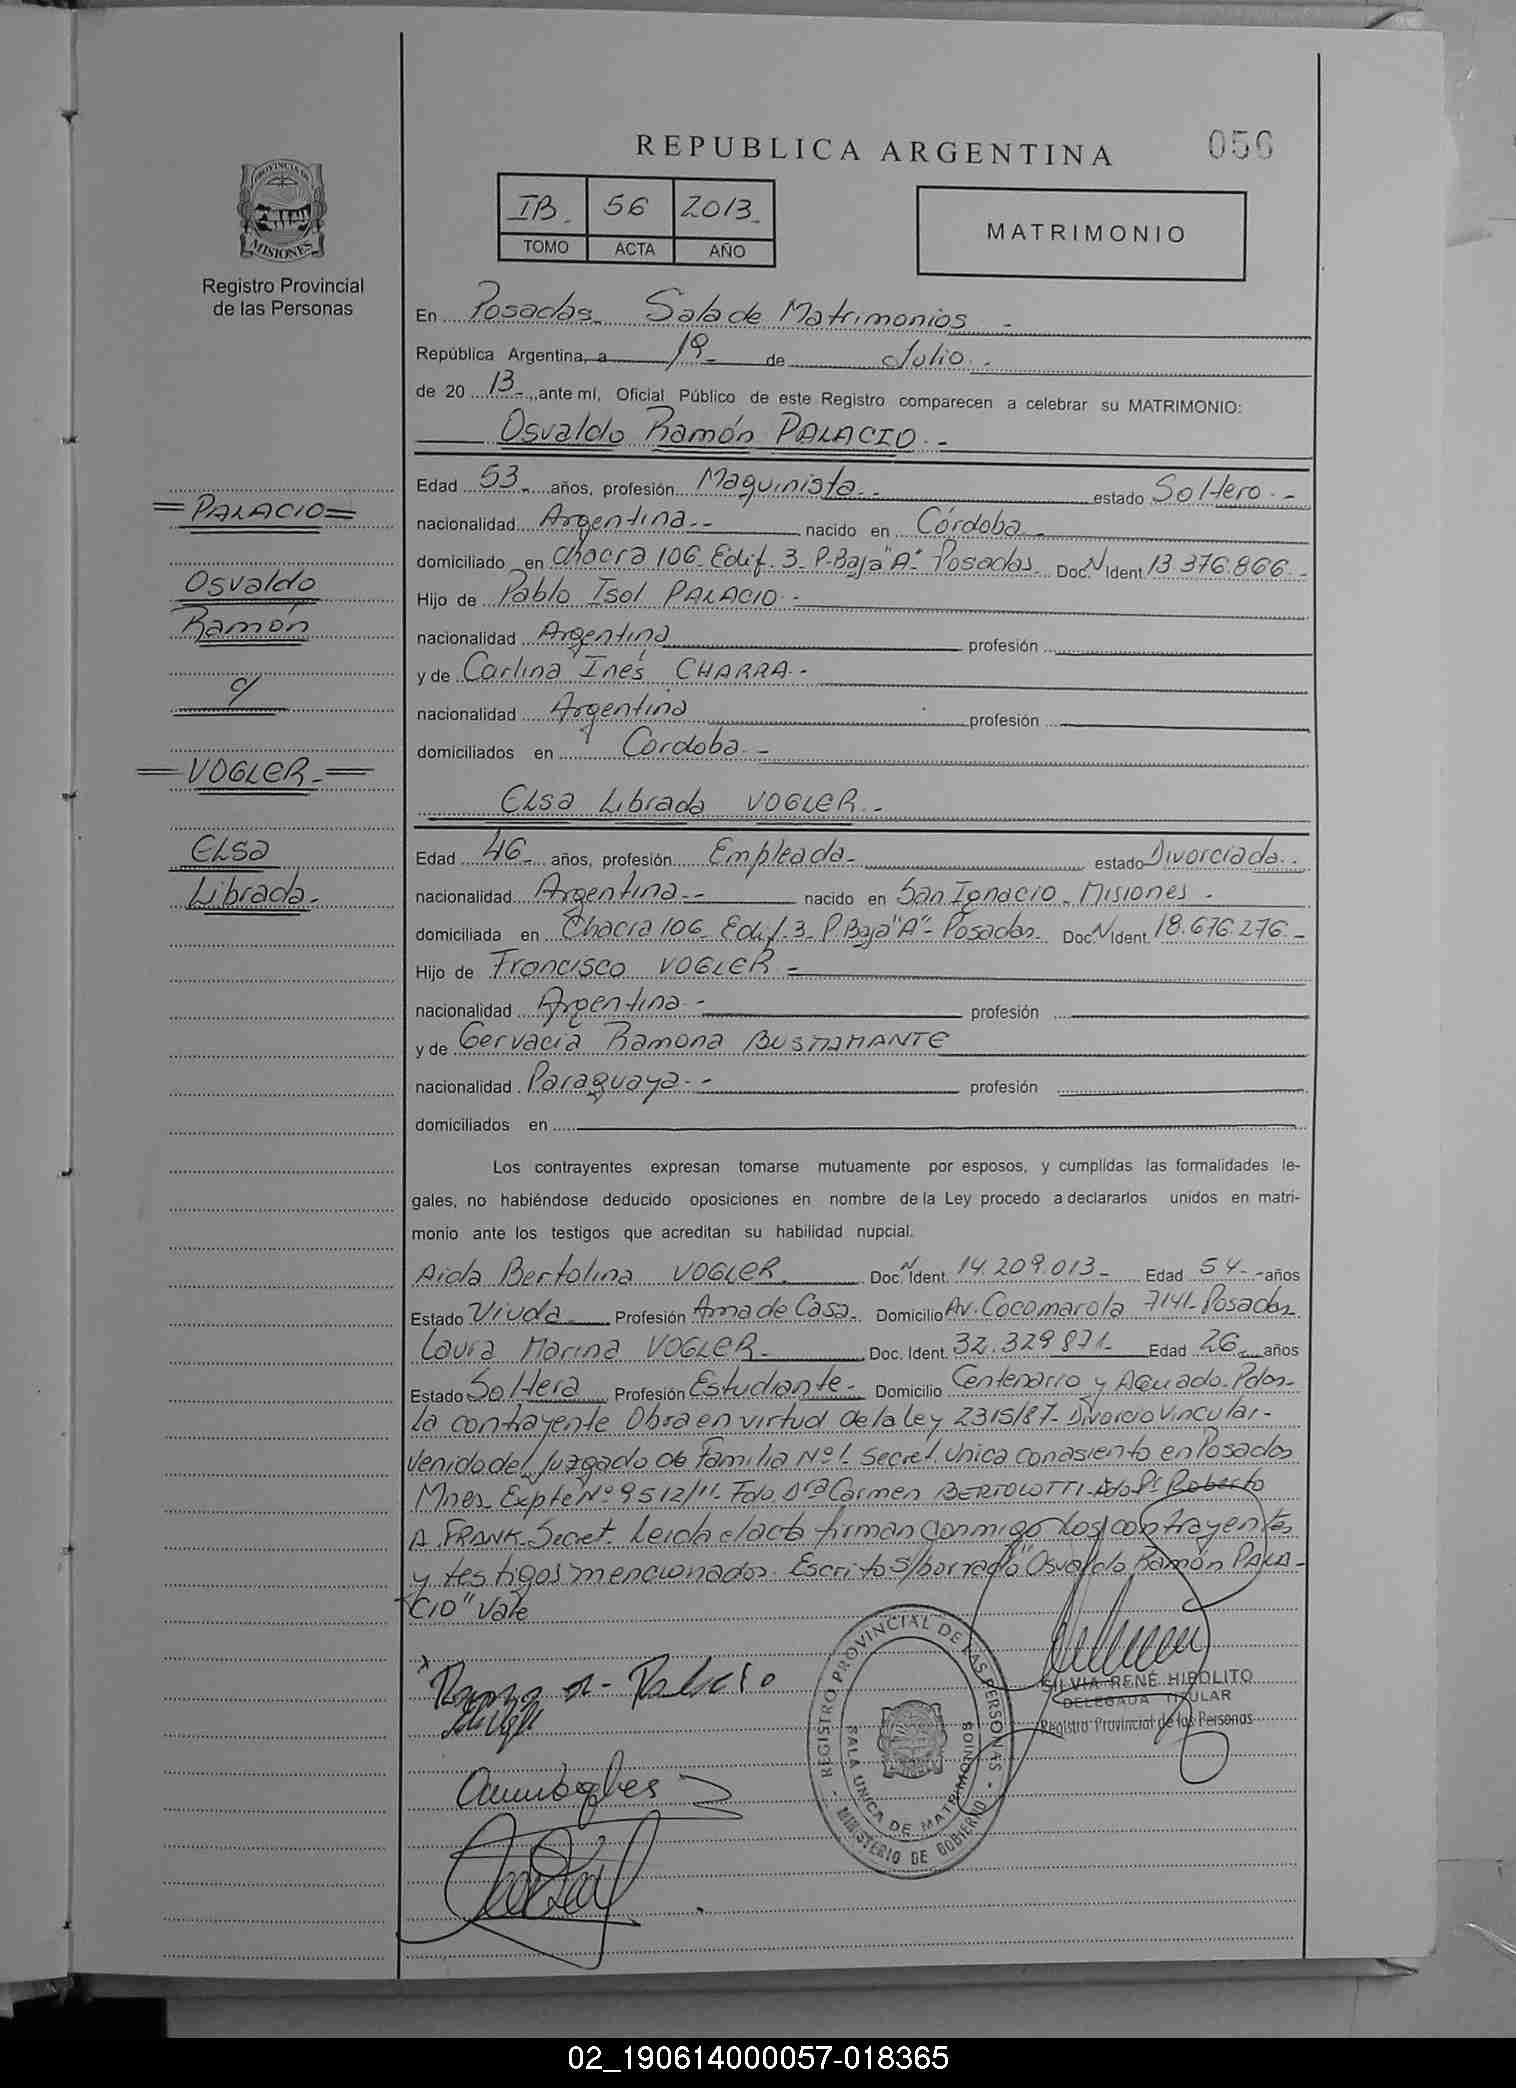 056
REPUBLICA ARGENTINA
PROVINCIA DE
MISIONES
Registro Provincial
de las Personas
IB. 56 2013.
TOMO ACTA AÑO
MATRIMONIO
En Posadas Sala de Matrimonios
República Argentina, a 19 de Julio
de 20 13 ante mí, Oficial Público de este Registro comparecen a celebrar su MATRIMONIO:
Osvaldo Ramón PALACIO
Edad 53 años, profesión Maquinista estado Soltero
nacionalidad Argentina nacido en Córdoba
domiciliado en Chacra 106 Edif. 3 P. Baja "A" Posadas Doc. N Ident. 13.376.866
Hijo de Pablo Isol PALACIO
nacionalidad Argentina profesión
y de Carlina Inés CHARRA
nacionalidad Argentina profesión
domiciliados en Córdoba
Elsa Librada VOGLER
Edad 46 años, profesión Empleada estado Divorciada
nacionalidad Argentina nacido en San Ignacio Misiones
domiciliada en Chacra 106 Edif. 3 P. Baja "A" Posadas Doc. N Ident. 18.676.276
Hijo de Francisco VOGLER
nacionalidad Argentina profesión
y de Gervacia Ramona BUSTAMANTE
nacionalidad Paraguaya profesión
domiciliados en
PALACIO
Osvaldo
Ramón
c/
VOGLER
Elsa
Librada
Los contrayentes expresan tomarse mutuamente por esposos, y cumplidas las formalidades le-
gales, no habiéndose deducido oposiciones en nombre de la Ley procedo a declararlos unidos en matri-
monio ante los testigos que acreditan su habilidad nupcial.
Aida Bertolina VOGLER Doc. N Ident. 14.209.013 Edad 54 años
Estado Viuda Profesión Ama de Casa Domicilio Av. Cocomarola 7141 Posadas
Laura Marina VOGLER Doc. Ident. 32.329.871 Edad 26 años
Estado Soltera Profesión Estudiante Domicilio Centenario y Aguado Pdas
La contrayente Obra en virtud de la Ley 2315/87 Divorcio Vincular
venido del Juzgado de Familia Nº 1 Secret. Unica con asiento en Posadas
Mnes Expte Nº 9512/11 Fdo. Dra Carmen BERTOLOTTI Roberto
A. FRANK Secret. Leida el acta firman conmigo los contrayentes
y testigos mencionados. Escrito s/borrado "Osvaldo Ramón PALA-
CIO" Vale
Palacio
REGISTRO PROVINCIAL DE LAS PERSONAS
SALA UNICA DE MATRIMONIOS
MINISTERIO DE GOBIERNO
SILVIA RENÉ HIPOLITO
DELEGADA TITULAR
Registro Provincial de las Personas
02_190614000057-018365